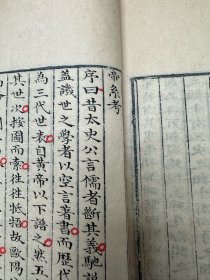 帝系考
序曰昔太史公言儒者斷其義馳説
蓋譏世之學者以空言著書而歷
為三代世表自黃帝以下譜之然五
其世次按圖而索徃徃牴牾故歐陽